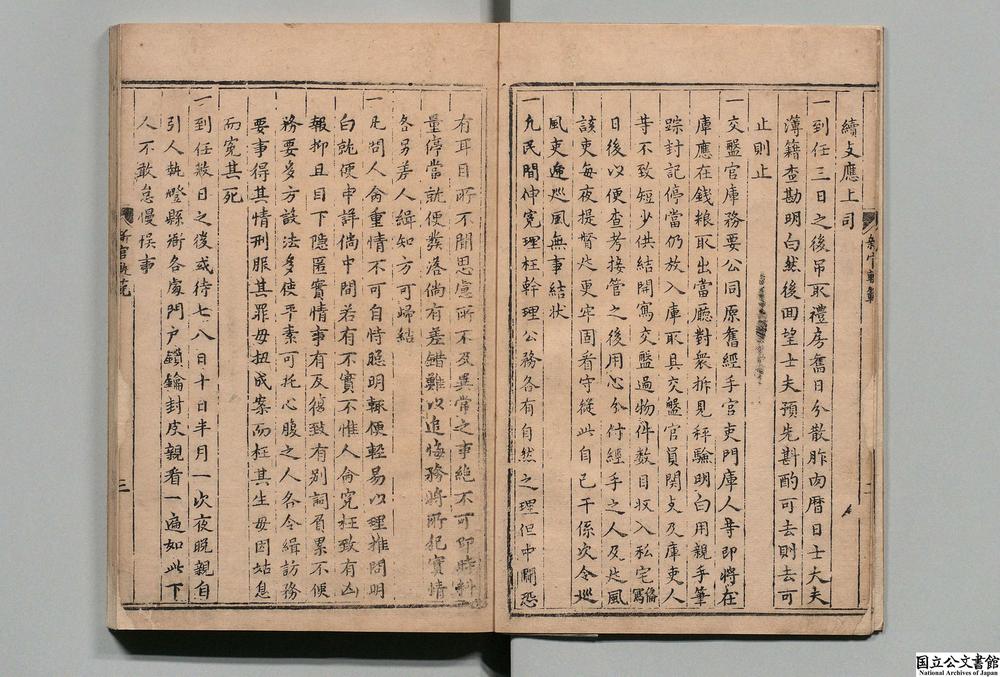 續文應上司
一到任三日之後吊取禮房舊日分散胙肉曆日士大夫
薄籍查勘明白然後回望士夫預先斟酌可去則去可
止則止
一交盤官庫務要公同原舊經手官吏門庫人等即將在
庫應在錢粮取出當廳對衆拆見秤驗明白用親手筆
踪封記停當仍放入庫取具交盤官員関文及庫吏人
等不致短少供結開寫交盤過物件数目收入私宅備寫
日後以便查考接管之後用心分付經手之人及巡風
該吏每夜提督巡更牢固看守縱此自已干係次令巡
風吏遞巡風無事結狀
一凡民間伸寃理枉幹理公務各有自然之理但中間恐
新官軌範
二
有耳目所不聞思慮所不及異常之事絶不可即時斜
量停當就便發落倘有差錯難以追悔務將所犯實情
各另差人緝知方可歸結
一凡問人命重情不可自恃聰明輒便輕易以理推問明
白就便申詳倘中間若有不實不惟人命寃枉致有凶
報抑且目下隱匿實情事有反復致有別詞負累不便
務要多方設法多使平素可托心腹之人各令緝訪務
要事得其情刑服其罪毋扭成案而枉其生毋因姑息
而寃其死
一到任數日之後或待七八日十日半月一次夜晚親自
引人執燈縣衙各處門户鎖鑰封皮親看一遍如此下
人不敢怠慢悮事
新官軌範
三
国立公文書館
National Archives of Japan